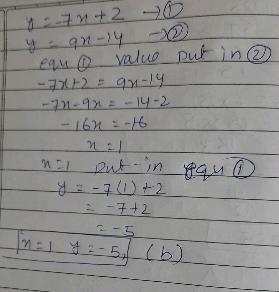 y = -7x + 2 → ①
y = 9x - 14 → ②
equ ① value put in ②
-7x + 2 = 9x - 14
-7x - 9x = -14 - 2
-16x = -16
x = 1
x = 1 put in equ ①
y = -7(1) + 2
= -7 + 2
= -5
x = 1 y = -5, (b)